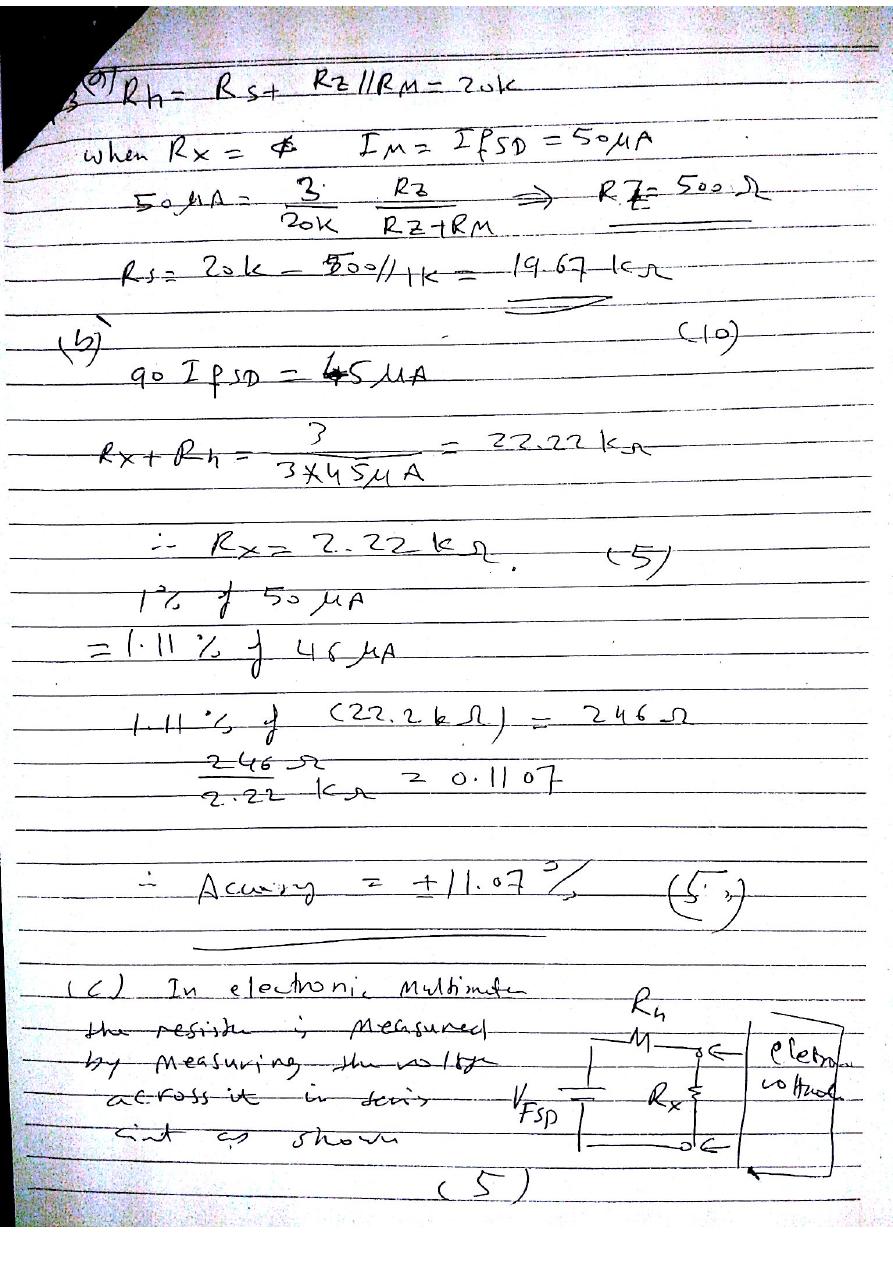 (a) Rh = Rs + RZ//RM = 20k
when Rx = ¢ IM = IfSD = 50μA
50μA = 3/20k RZ/(RZ+RM) ⇒ RZ = 500Ω
Rs = 20k - 500//1k = 19.67 kΩ
(b) (10)
90 IfSD = 45 μA
Rx + Rh = 3/(3×45μA) = 22.22 kΩ
∴ Rx = 2.22 kΩ. (5)
1% of 50 μA
= 1.11 % of 45 μA
1.11 % of (22.2 kΩ) = 246 Ω
246 Ω/2.22 kΩ = 0.1107
∴ Accuracy = ±11.07 % (5)
(c) In electronic Multimeter
the resistor is Measured
by Measuring the voltge
across it in seris
as shown
Rh
VFSD
Rx
(5)